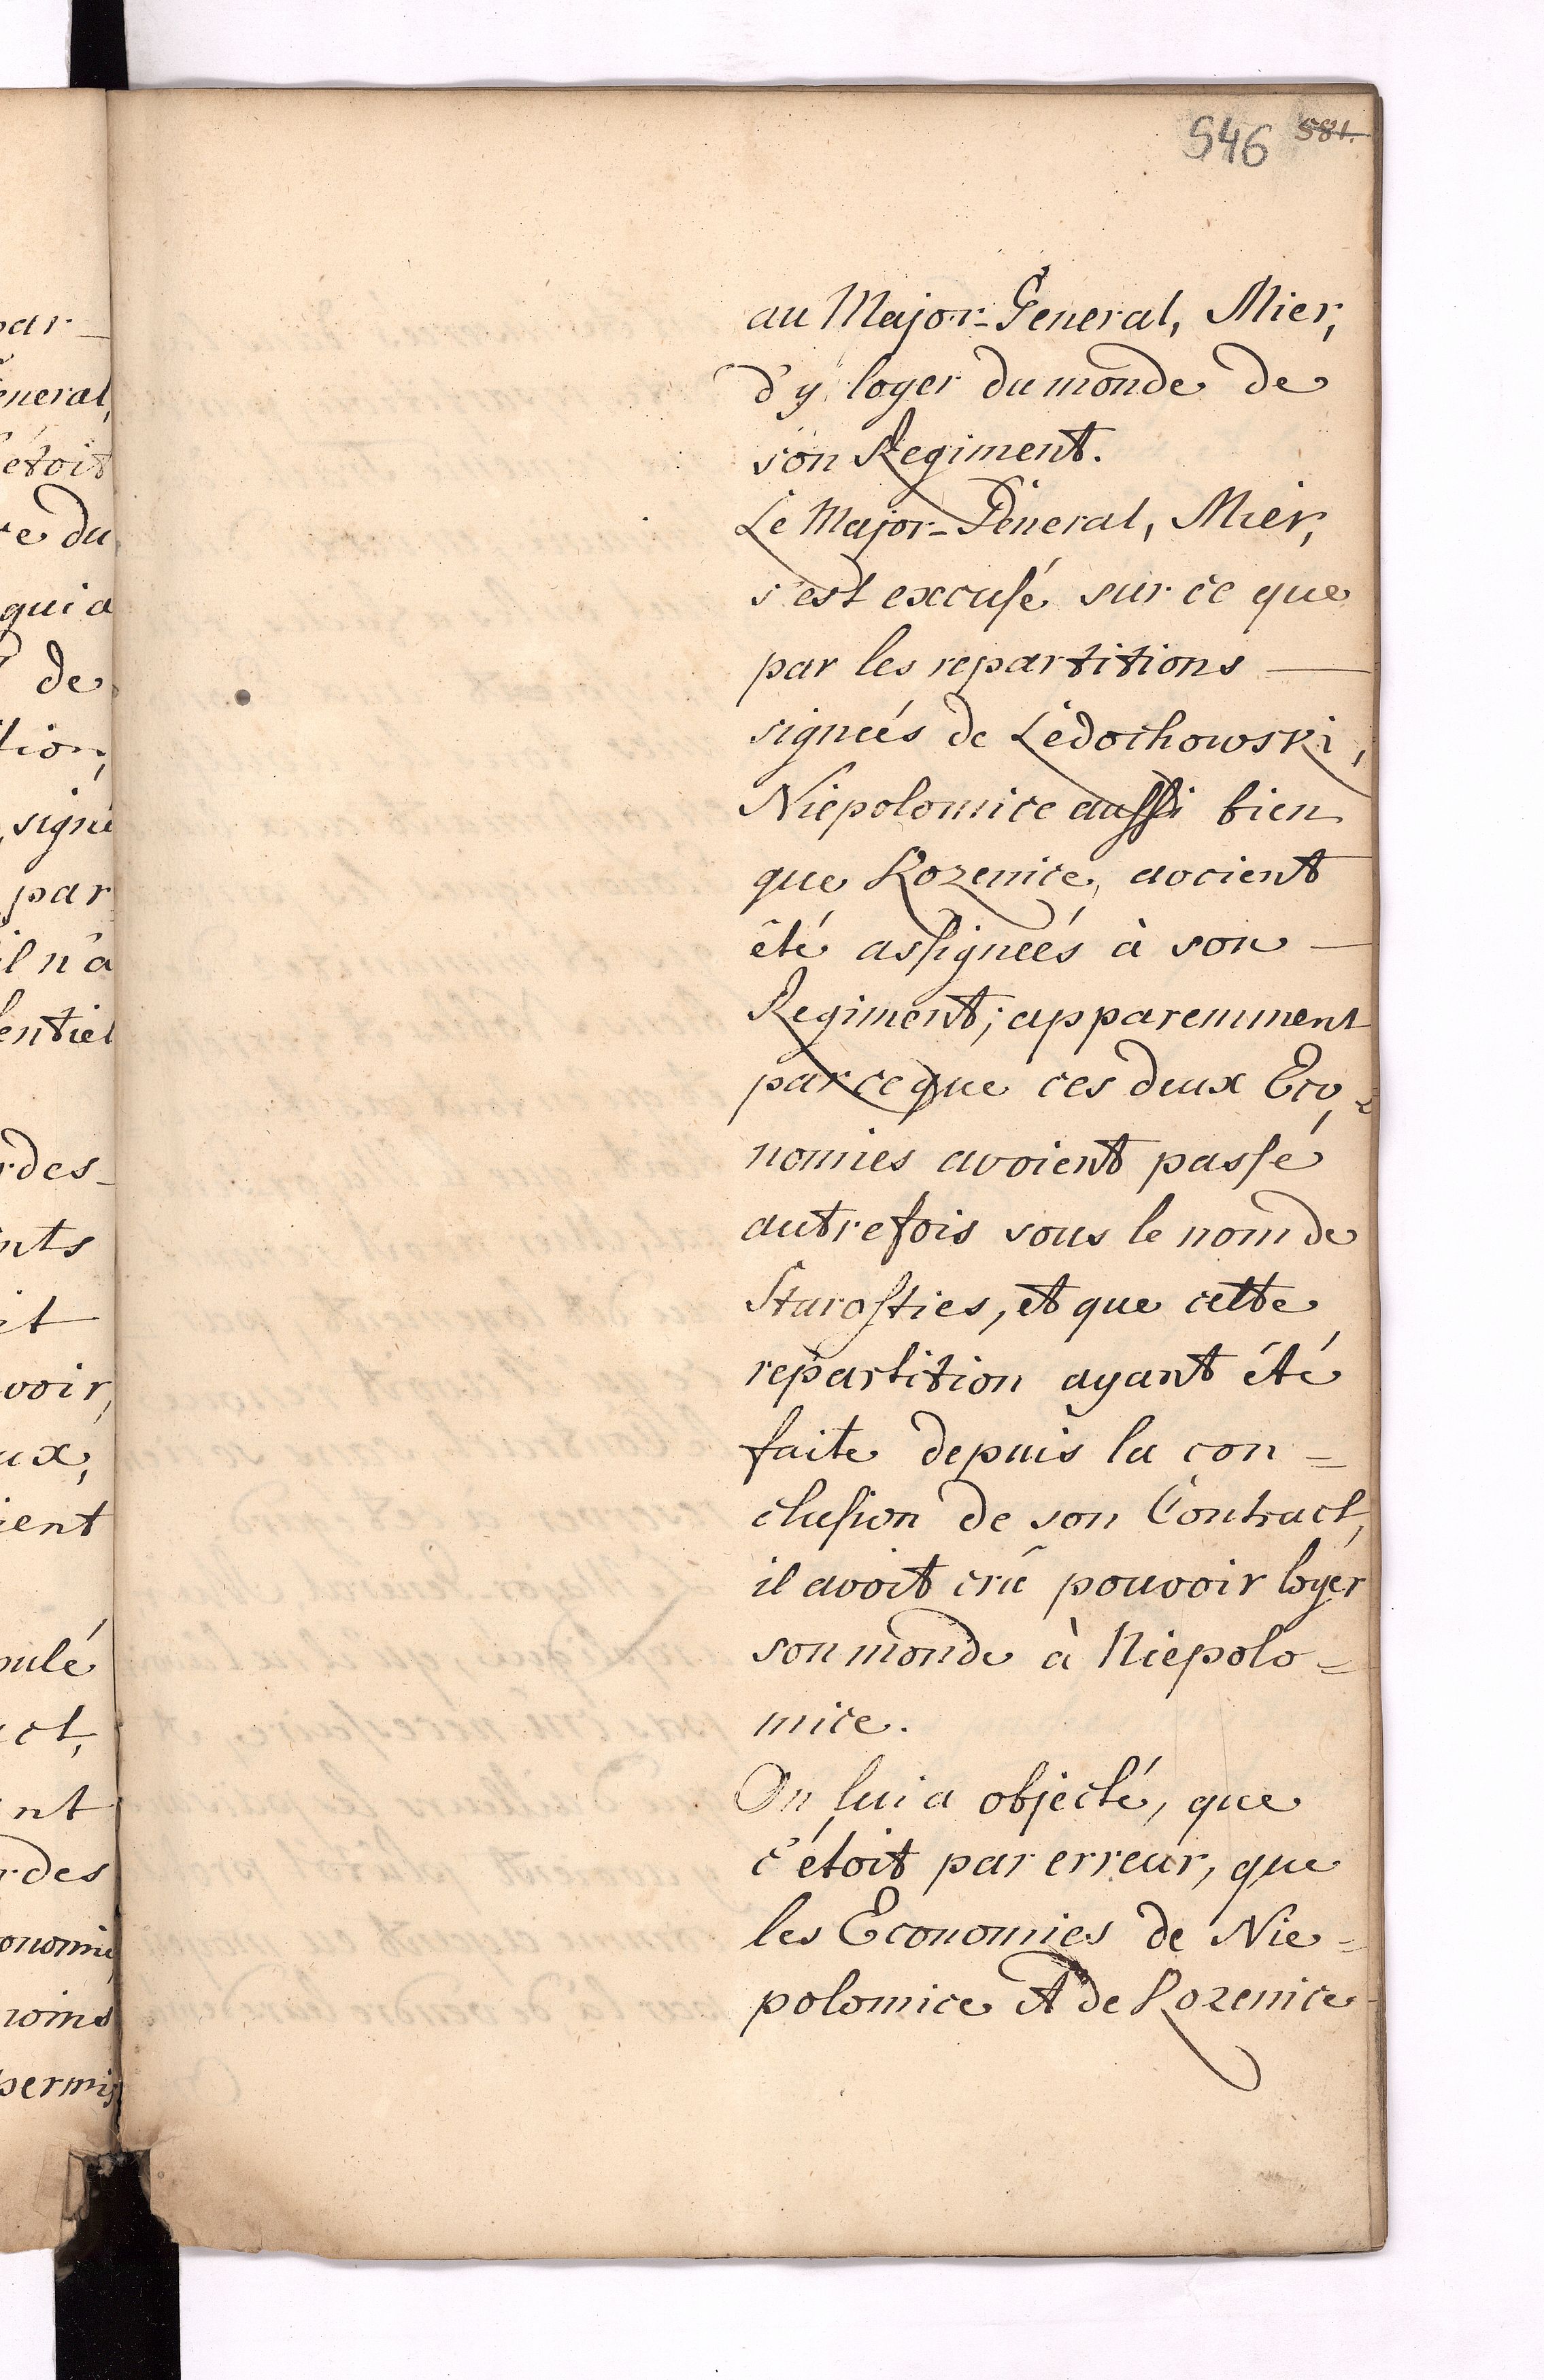 546 581.
au Major-General, Mier,
d'y loger du monde de
son Regiment.
Le Major-General, Mier,
s'est excusé sur ce que
par les repartitions —
signeés de Ledochowski,
Niepolomice aussi bien
que Rozenice, avoient
été assigneés à son —
Regiment; apparemment
parceque ces deux Eco=
nomies avoient passé
autrefois sous le nom de
Starosties, et que cette
repartition ayant été
faite depuis la con=
clusion de son Contract,
il avoit crû pouvoir loger
son monde à Niepolo=
mice.
On lui a objecté, que
c'étoit par erreur, que
les Economies de Nie=
polomice et de Rozenice